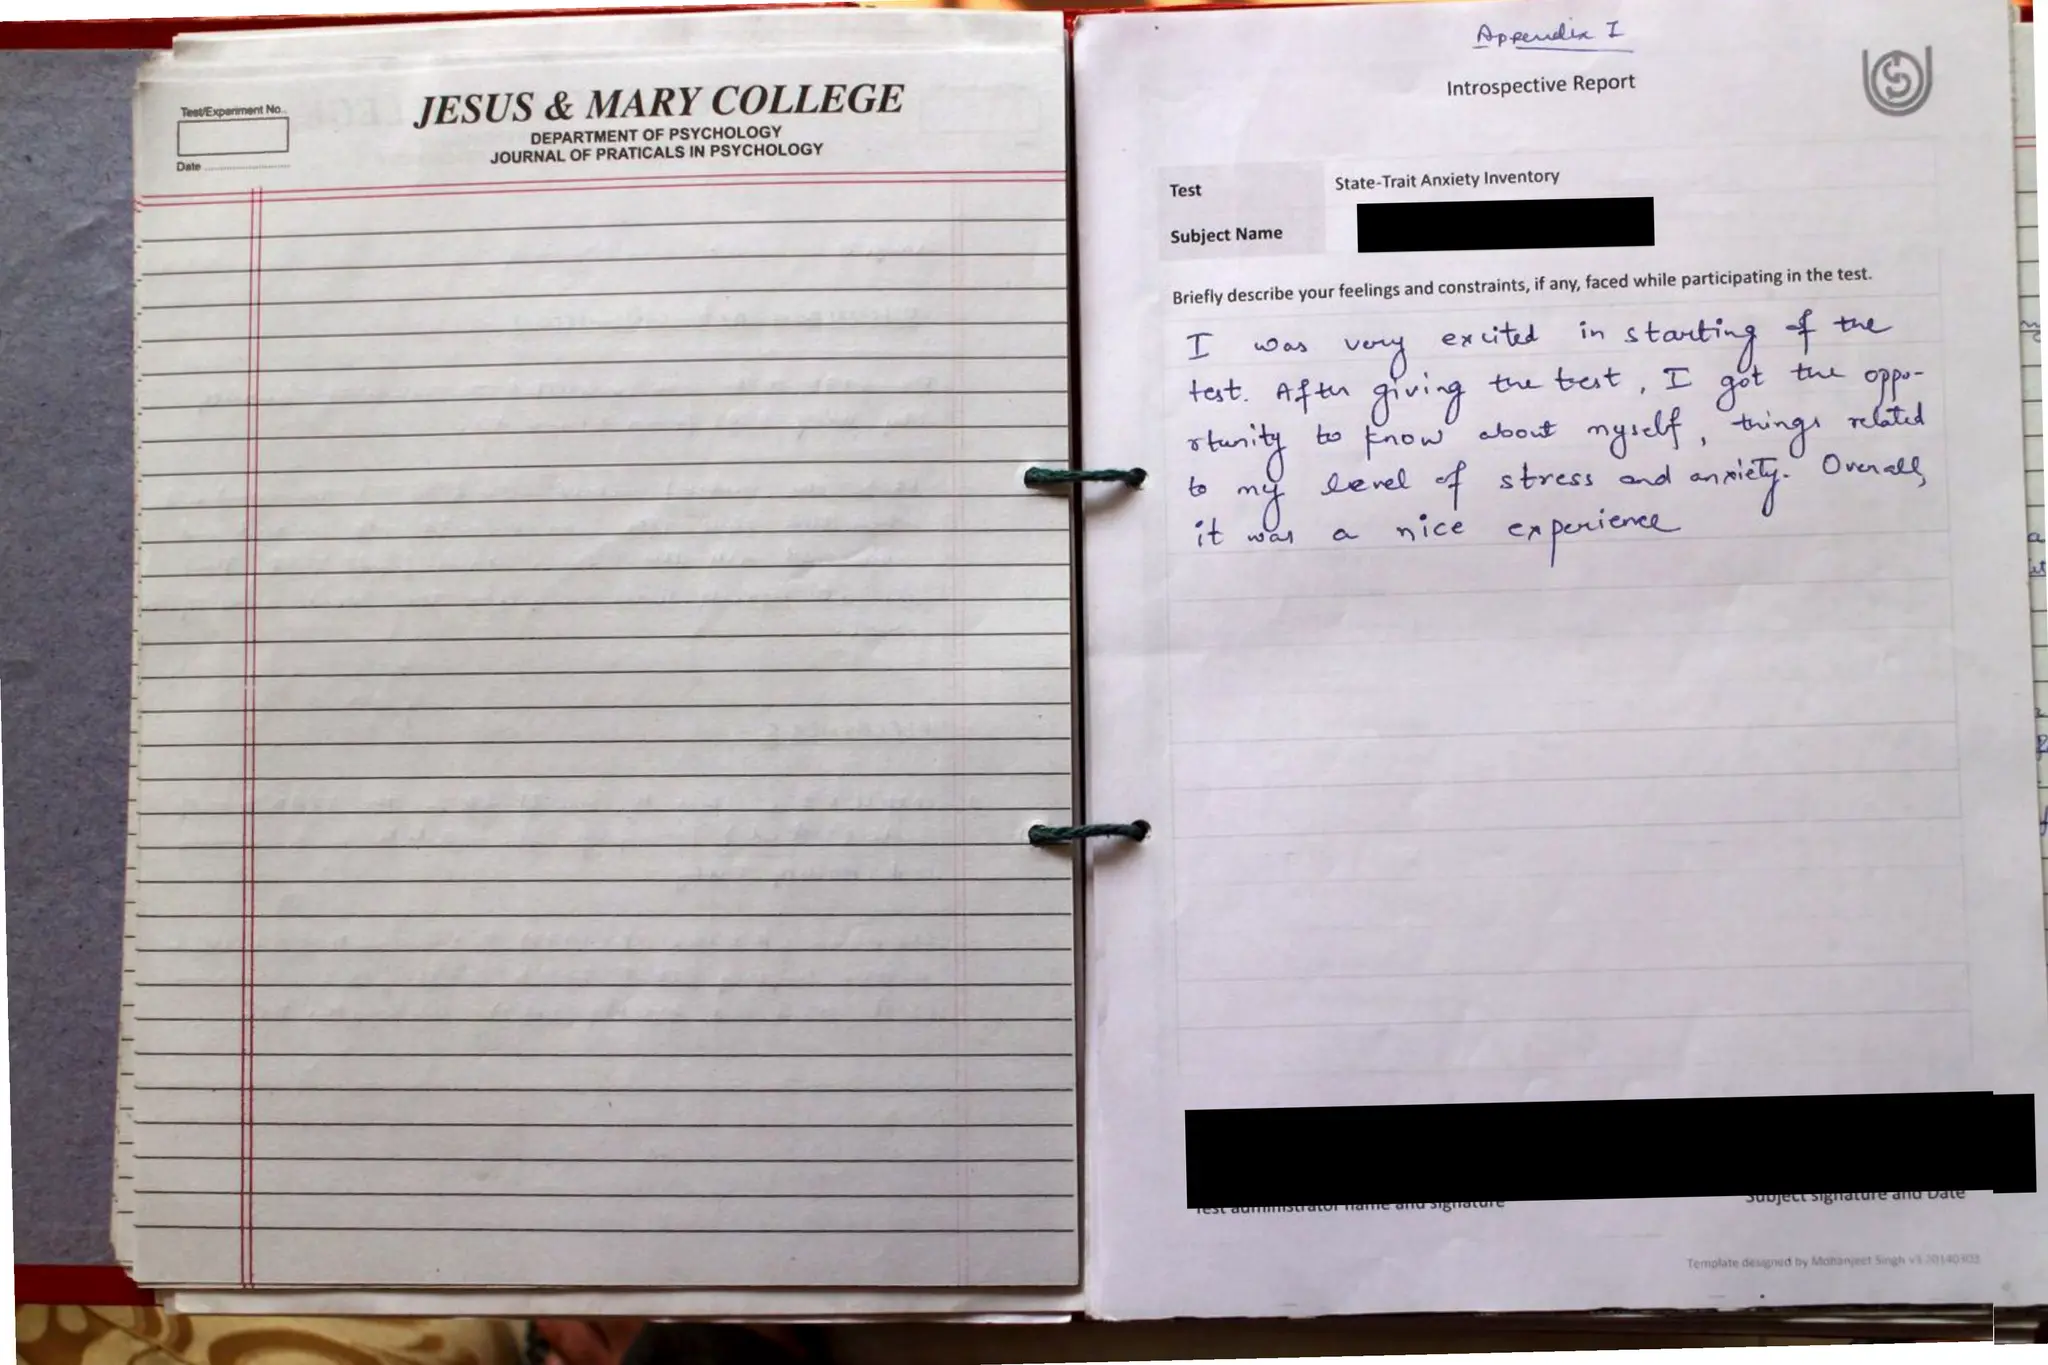 Test/Experiment No..
Date
JESUS & MARY COLLEGE
DEPARTMENT OF PSYCHOLOGY
JOURNAL OF PRATICALS IN PSYCHOLOGY
Appendix I
Introspective Report
Test State-Trait Anxiety Inventory
Subject Name
Briefly describe your feelings and constraints, if any, faced while participating in the test.
I was very excited in starting of the
test. After giving the test, I got the oppo-
rtunity to know about myself, things related
to my level of stress and anxiety. Overall,
it was a nice experience
Test administrator name and signature
Subject signature and Date
Template designed by Mohanjeet Singh v3 20140303